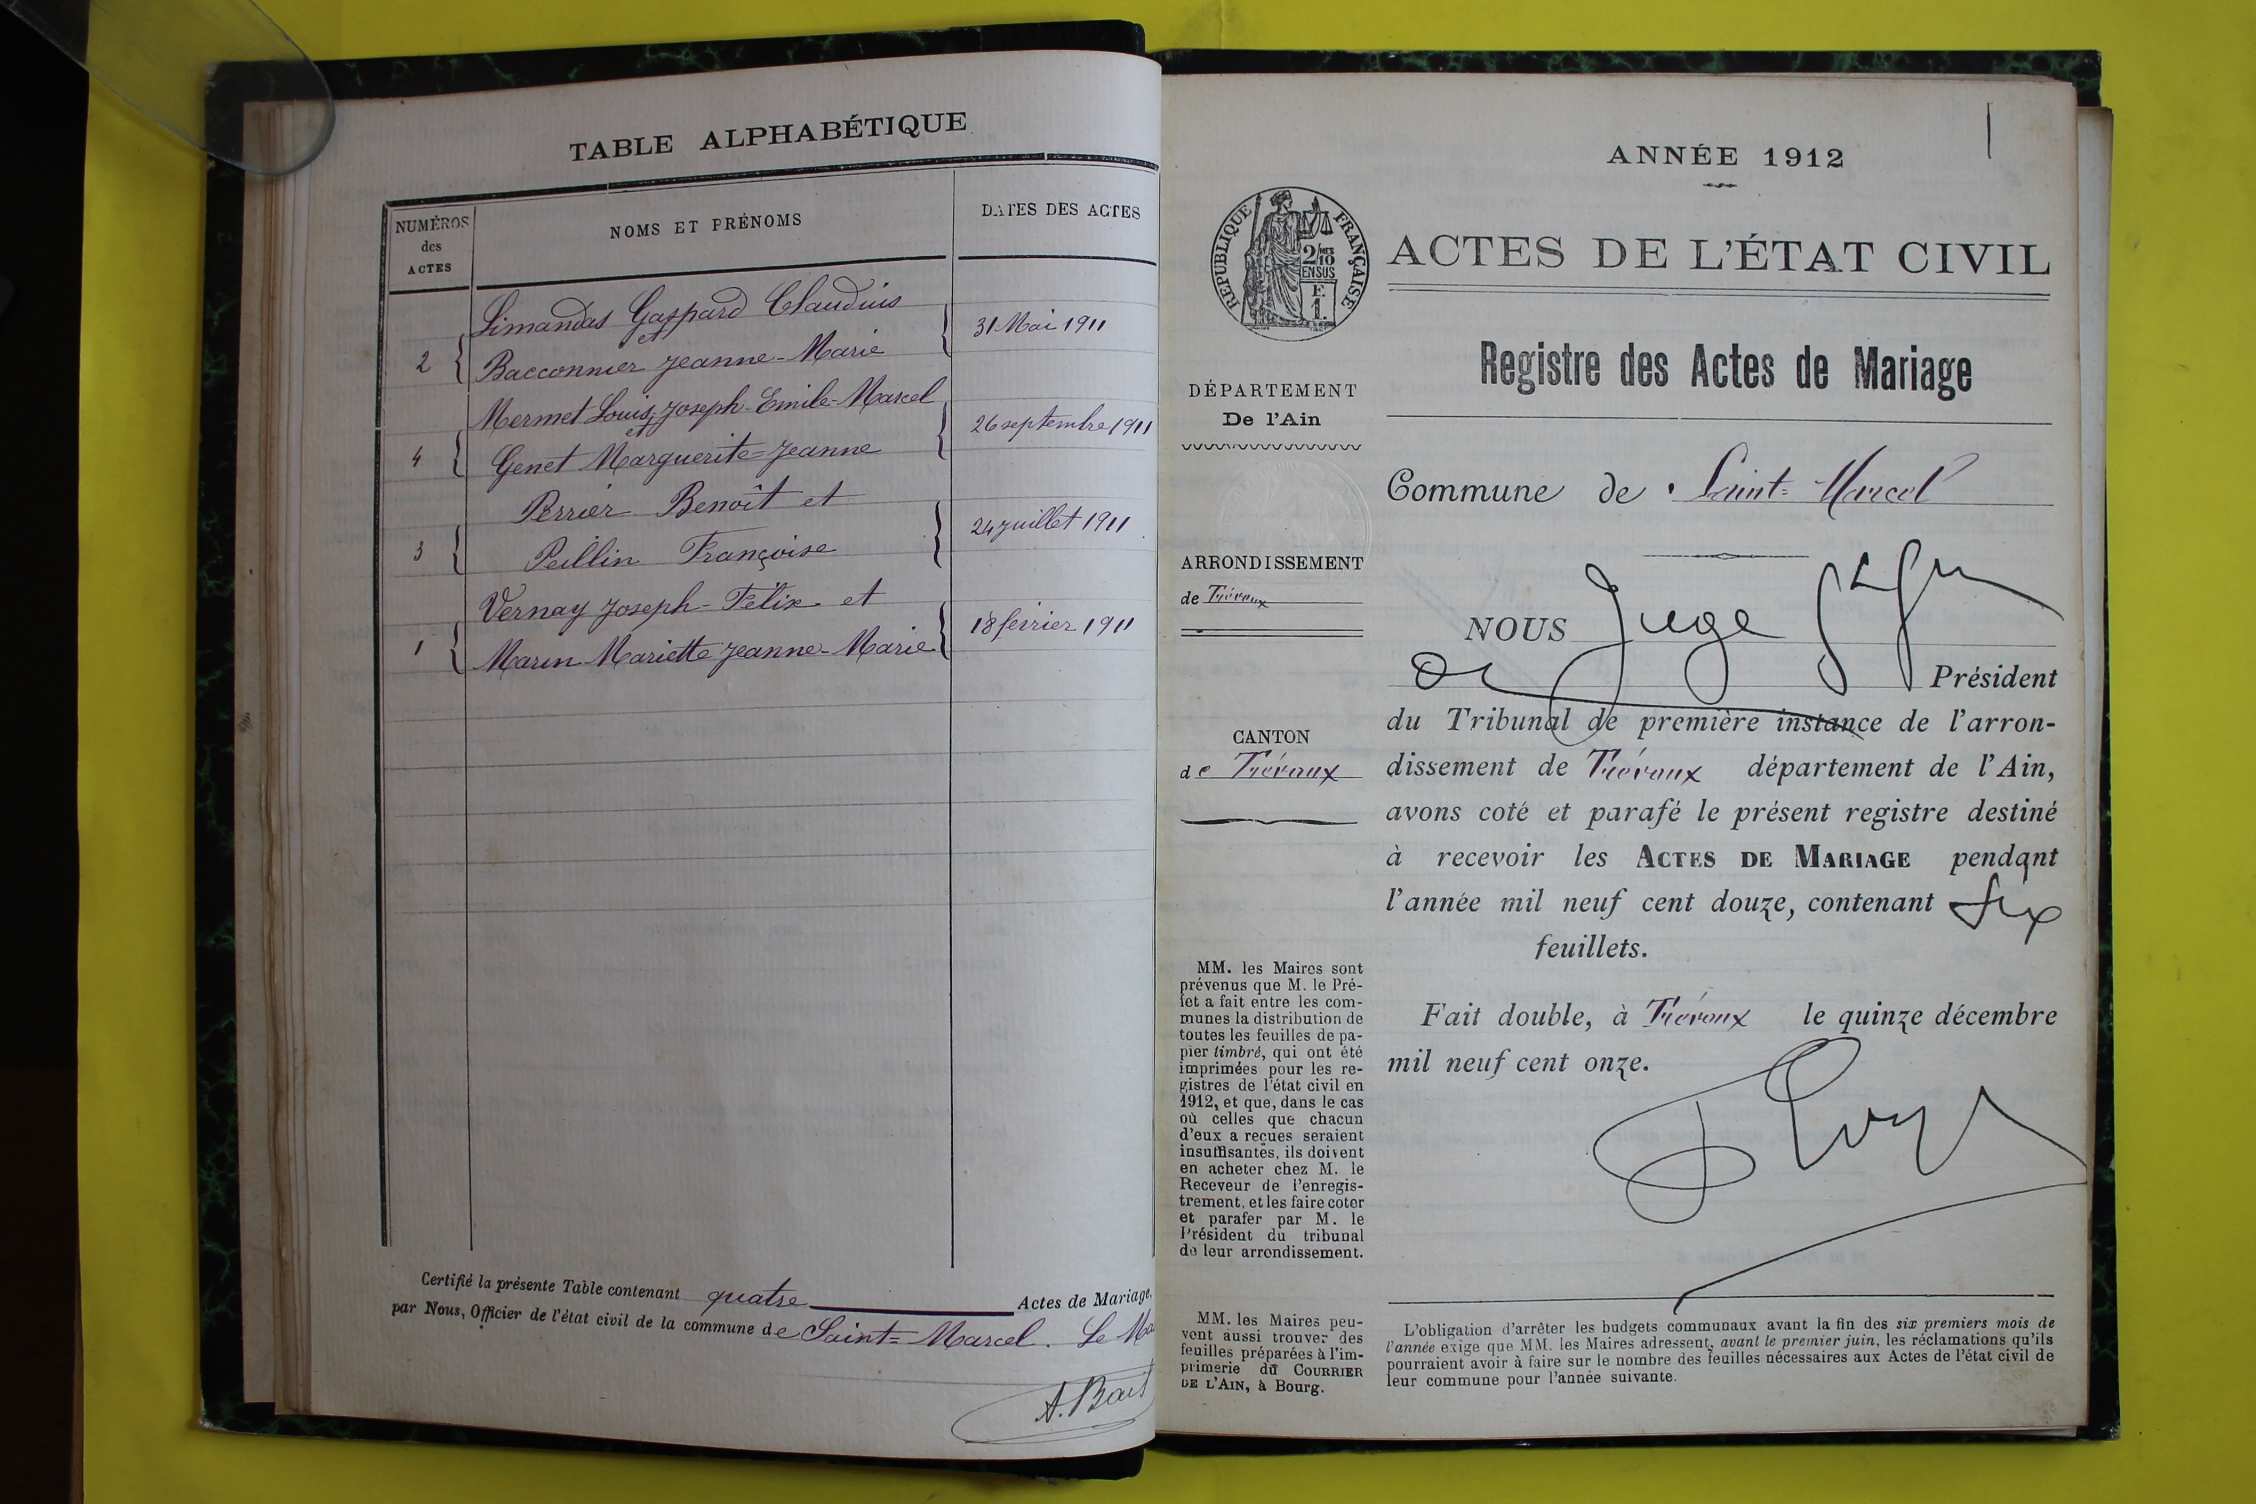 TABLE ALPHABÉTIQUE
NUMÉROS
des
ACTES
NOMS ET PRÉNOMS
DATES DES ACTES
Limandas Gaspard Claudius
et
2 { Bacconnier Jeanne-Marie } 31 Mai 1911
Mermet Louis, Joseph-Emile-Marcel
et
4 { Genet Marguerite=Jeanne } 26 septembre 1911
Perrier Benoît et
3 { Peillin Françoise } 24 juillet 1911
Vernay Joseph-Félix et
1 { Marin Mariette Jeanne-Marie } 18 février 1911
Certifié la présente Table contenant quatre Actes de Mariage,
par Nous, Officier de l'état civil de la commune de Saint=Marcel. Le Ma
1
ANNÉE 1912
RÉPUBLIQUE FRANÇAISE
2/10
EN SUS
F.
1.
ACTES DE L'ÉTAT CIVIL
Registre des Actes de Mariage
DÉPARTEMENT
De l'Ain
Commune de Saint=Marcel
ARRONDISSEMENT
de Trévoux
CANTON
de Trévoux
NOUS Juge
Président
du Tribunal de première instance de l'arron-
dissement de Trévoux département de l'Ain,
avons coté et parafé le présent registre destiné
à recevoir les ACTES DE MARIAGE pendant
l'année mil neuf cent douze, contenant six
feuillets.
Fait double, à Trévoux le quinze décembre
mil neuf cent onze.
MM. les Maires sont
prévenus que M. le Pré-
fet a fait entre les com-
munes la distribution de
toutes les feuilles de pa-
pier timbré, qui ont été
imprimées pour les re-
gistres de l'état civil en
1912, et que, dans le cas
où celles que chacun
d'eux a reçues seraient
insuffisantes, ils doivent
en acheter chez M. le
Receveur de l'enregis-
trement, et les faire coter
et parafer par M. le
Président du tribunal
de leur arrondissement.
MM. les Maires peu-
vent aussi trouver des
feuilles préparées à l'im-
primerie du COURRIER
DE L'AIN, à Bourg.
L'obligation d'arrêter les budgets communaux avant la fin des six premiers mois de
l'année exige que MM. les Maires adressent, avant le premier juin, les réclamations qu'ils
pourraient avoir à faire sur le nombre des feuilles nécessaires aux Actes de l'état civil de
leur commune pour l'année suivante.